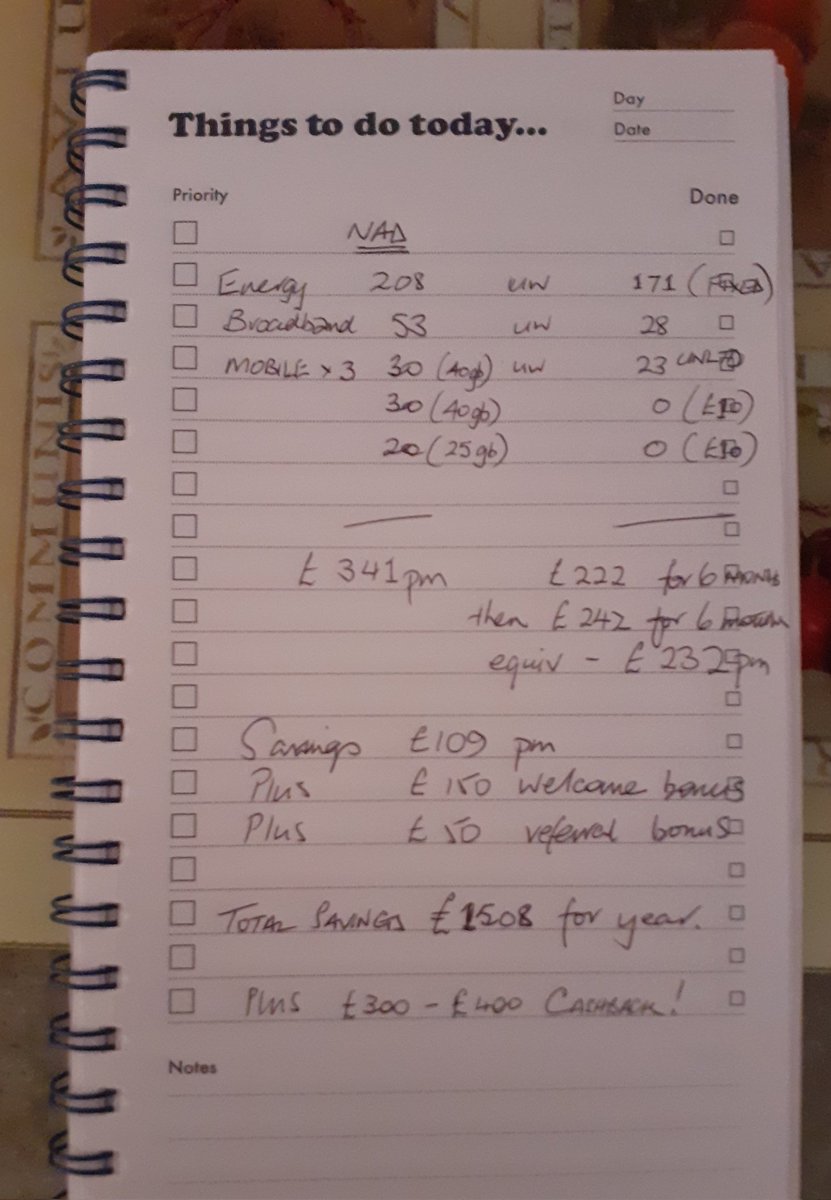 Day
Things to do today...
Date
Priority Done
NAD
Energy 208 UW 171 (FIXED)
Broadband 53 UW 28
MOBILE x 3 30 (40gb) UW 23 UNLTD
30 (40gb) 0 (£10)
20 (25gb) 0 (£10)
£341pm £222 for 6 months
then £242 for 6 months
equiv - £232pm
Savings £109 pm
Plus £150 welcome bonus
Plus £50 referral bonus
TOTAL SAVINGS £1508 for year.
Plus £300 - £400 CASHBACK!
Notes
COMMUNIS